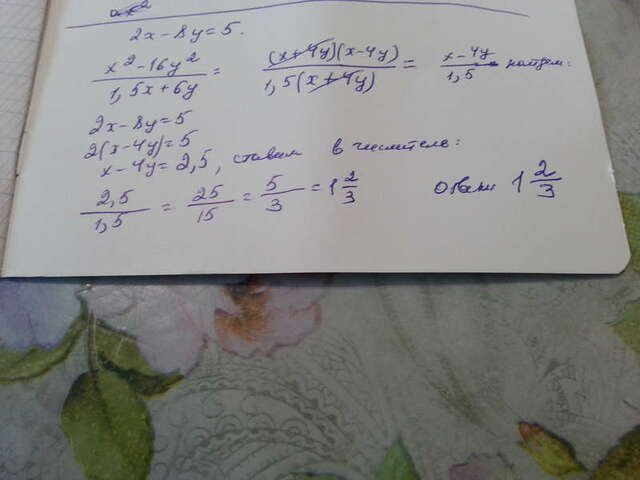 2x - 8y = 5.
x² - 16y² / 1,5x + 6y = (x + 4y)(x - 4y) / 1,5(x + 4y) = x - 4y / 1,5 найдем:
2x - 8y = 5
2(x - 4y) = 5
x - 4y = 2,5, ставим в числителе:
2,5 / 1,5 = 25 / 15 = 5 / 3 = 1 2/3 Ответ 1 2/3